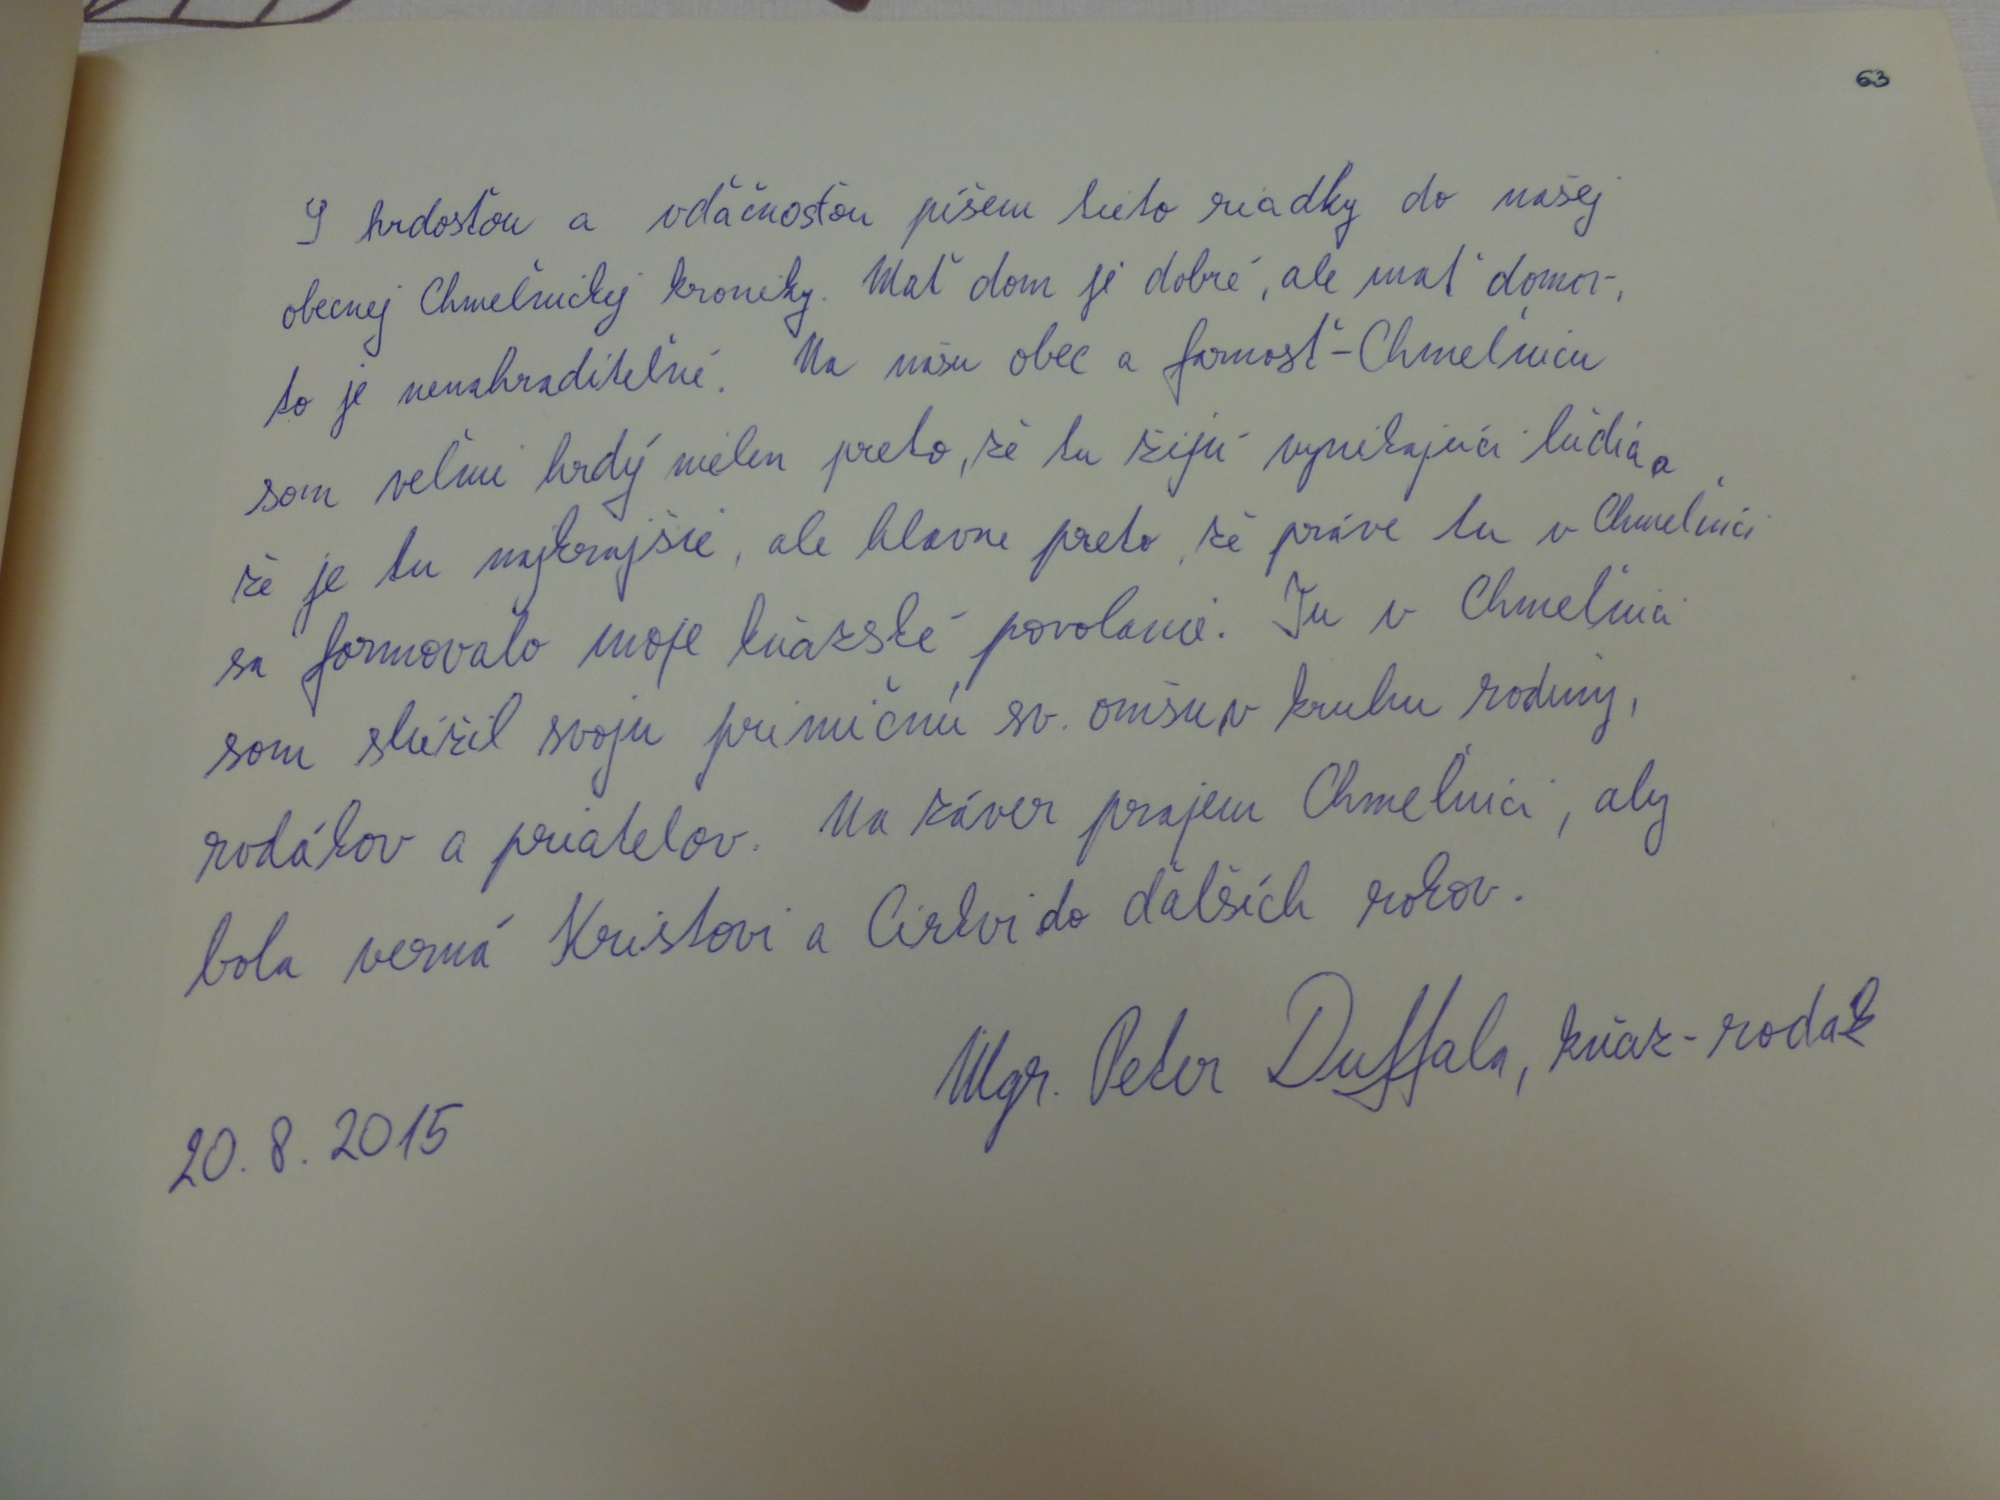 63
S hrdosťou a vďačnosťou píšem tieto riadky do našej
obecnej Chmeľnickej kroniky. Mať dom je dobré, ale mať domov,
to je nenahraditeľné. Na našu obec a farnosť-Chmeľnicu
som veľmi hrdý nielen preto, že tu žijú vynikajúci ľudia a
že je tu najkrajšie, ale hlavne preto, že práve tu v Chmeľnici
sa formovalo moje kňazské povolanie. Tu v Chmeľnici
som slúžil svoju primičnú sv. omšu, v kruhu rodiny,
rodákov a priateľov. Na záver prajem Chmeľnici, aby
bola verná Kristovi a Cirkvi do ďalších rokov.
Mgr. Peter Duffala, kňaz-rodák
20. 8. 2015